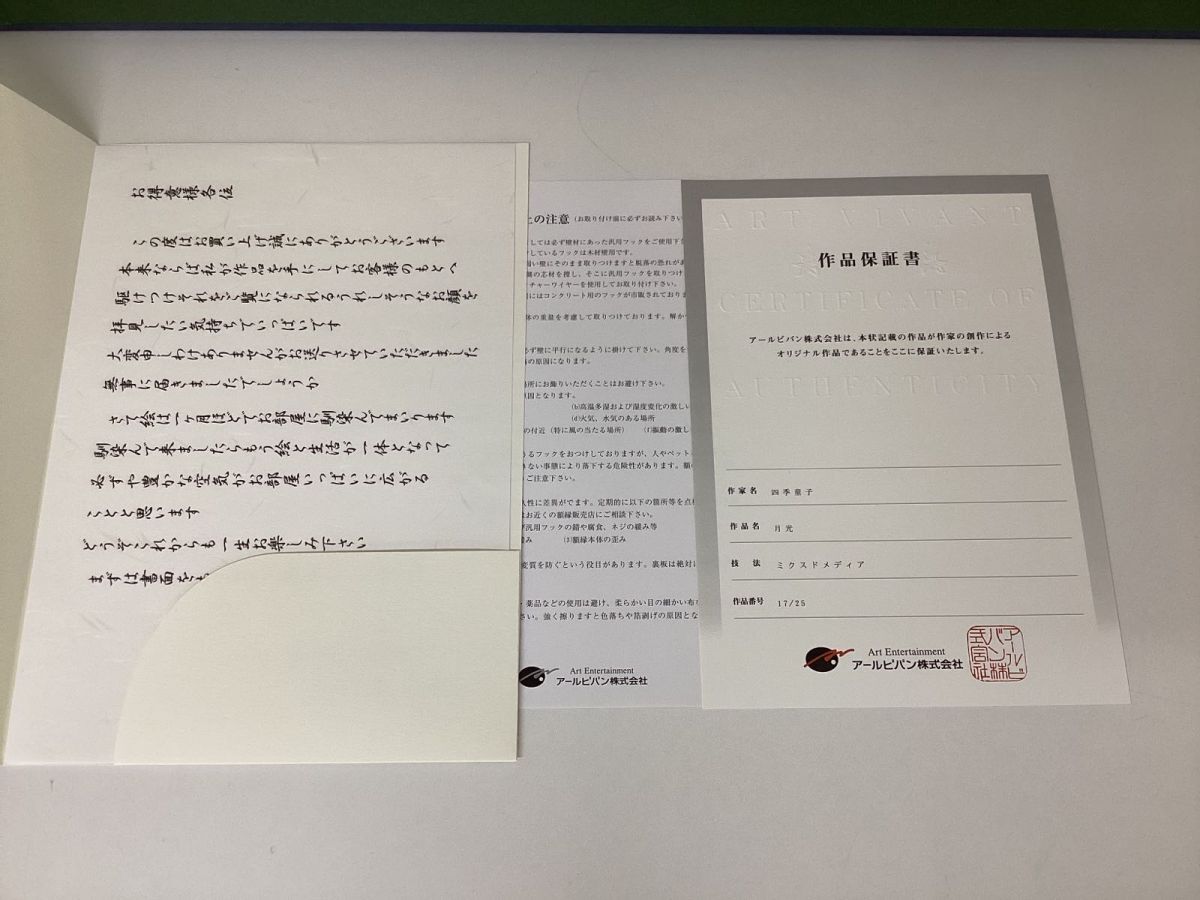 お得意様各位
この度はお買い上げ誠にありがとうございます
本来ならば私が作品を手にしてお客様のもとへ
駆けつけそれをご覧になられるうれしそうなお顔を
拝見したい気持ちでいっぱいです
大変申しわけありませんがお送りさせていただきました
無事に届きましたでしょうか
さて絵は一ヶ月ほどでお部屋に馴染んでまいります
馴染んで来ましたらもう絵と生活が一体となって
必ずや豊かな空気がお部屋いっぱいに広がる
ことと思います
どうぞこれからも一生お楽しみ下さい
まずは書面をも
上の注意（お取り付け前に必ずお読み下さい
しては必ず壁材にあった汎用フックをご使用下さ
しているフックは木材壁用です。
弱い壁にそのまま取りつけますと脱落の恐れがあ
の芯材を捜し、そこに汎用フックを取りつけ
チャーワイヤーを使用してお取り付け下さい。
にはコンクリート用のフックが市販されておりま
体の重量を考慮して取りつけております。解か
必ず壁に平行になるように掛けて下さい。角度を
の原因になります。
場所にお飾りいただくことはお避け下さい。
原因となります。
(b)高温多湿および湿度変化の激しい
(d)火気、水気のある場所
の付近（特に風の当たる場所） (f)振動の激し
るフックをおつけしておりますが、人やペット
きない事態により落下する危険性があります。額の
ご注意下さい。
久性に差異がでます。定期的に以下の箇所等を点検
はお近くの額縁販売店にご相談下さい。
汎用フックの錆や腐食、ネジの緩み等
緩み (3)額縁本体の歪み
変質を防ぐという役目があります。裏板は絶対に
・薬品などの使用は避け、柔らかい目の細かい布を
さい。強く擦りますと色落ちや箔剥げの原因とな
Art Entertainment
アールビバン株式会社
ART VIVANT
作品保証書
CERTIFICATE OF
アールビバン株式会社は、本状記載の作品が作家の創作による
オリジナル作品であることをここに保証いたします。
AUTHENTICITY
作家名 四季童子
作品名 月光
技 法 ミクスドメディア
作品番号 17/25
Art Entertainment
アールビバン株式会社
アールビバン株式会社